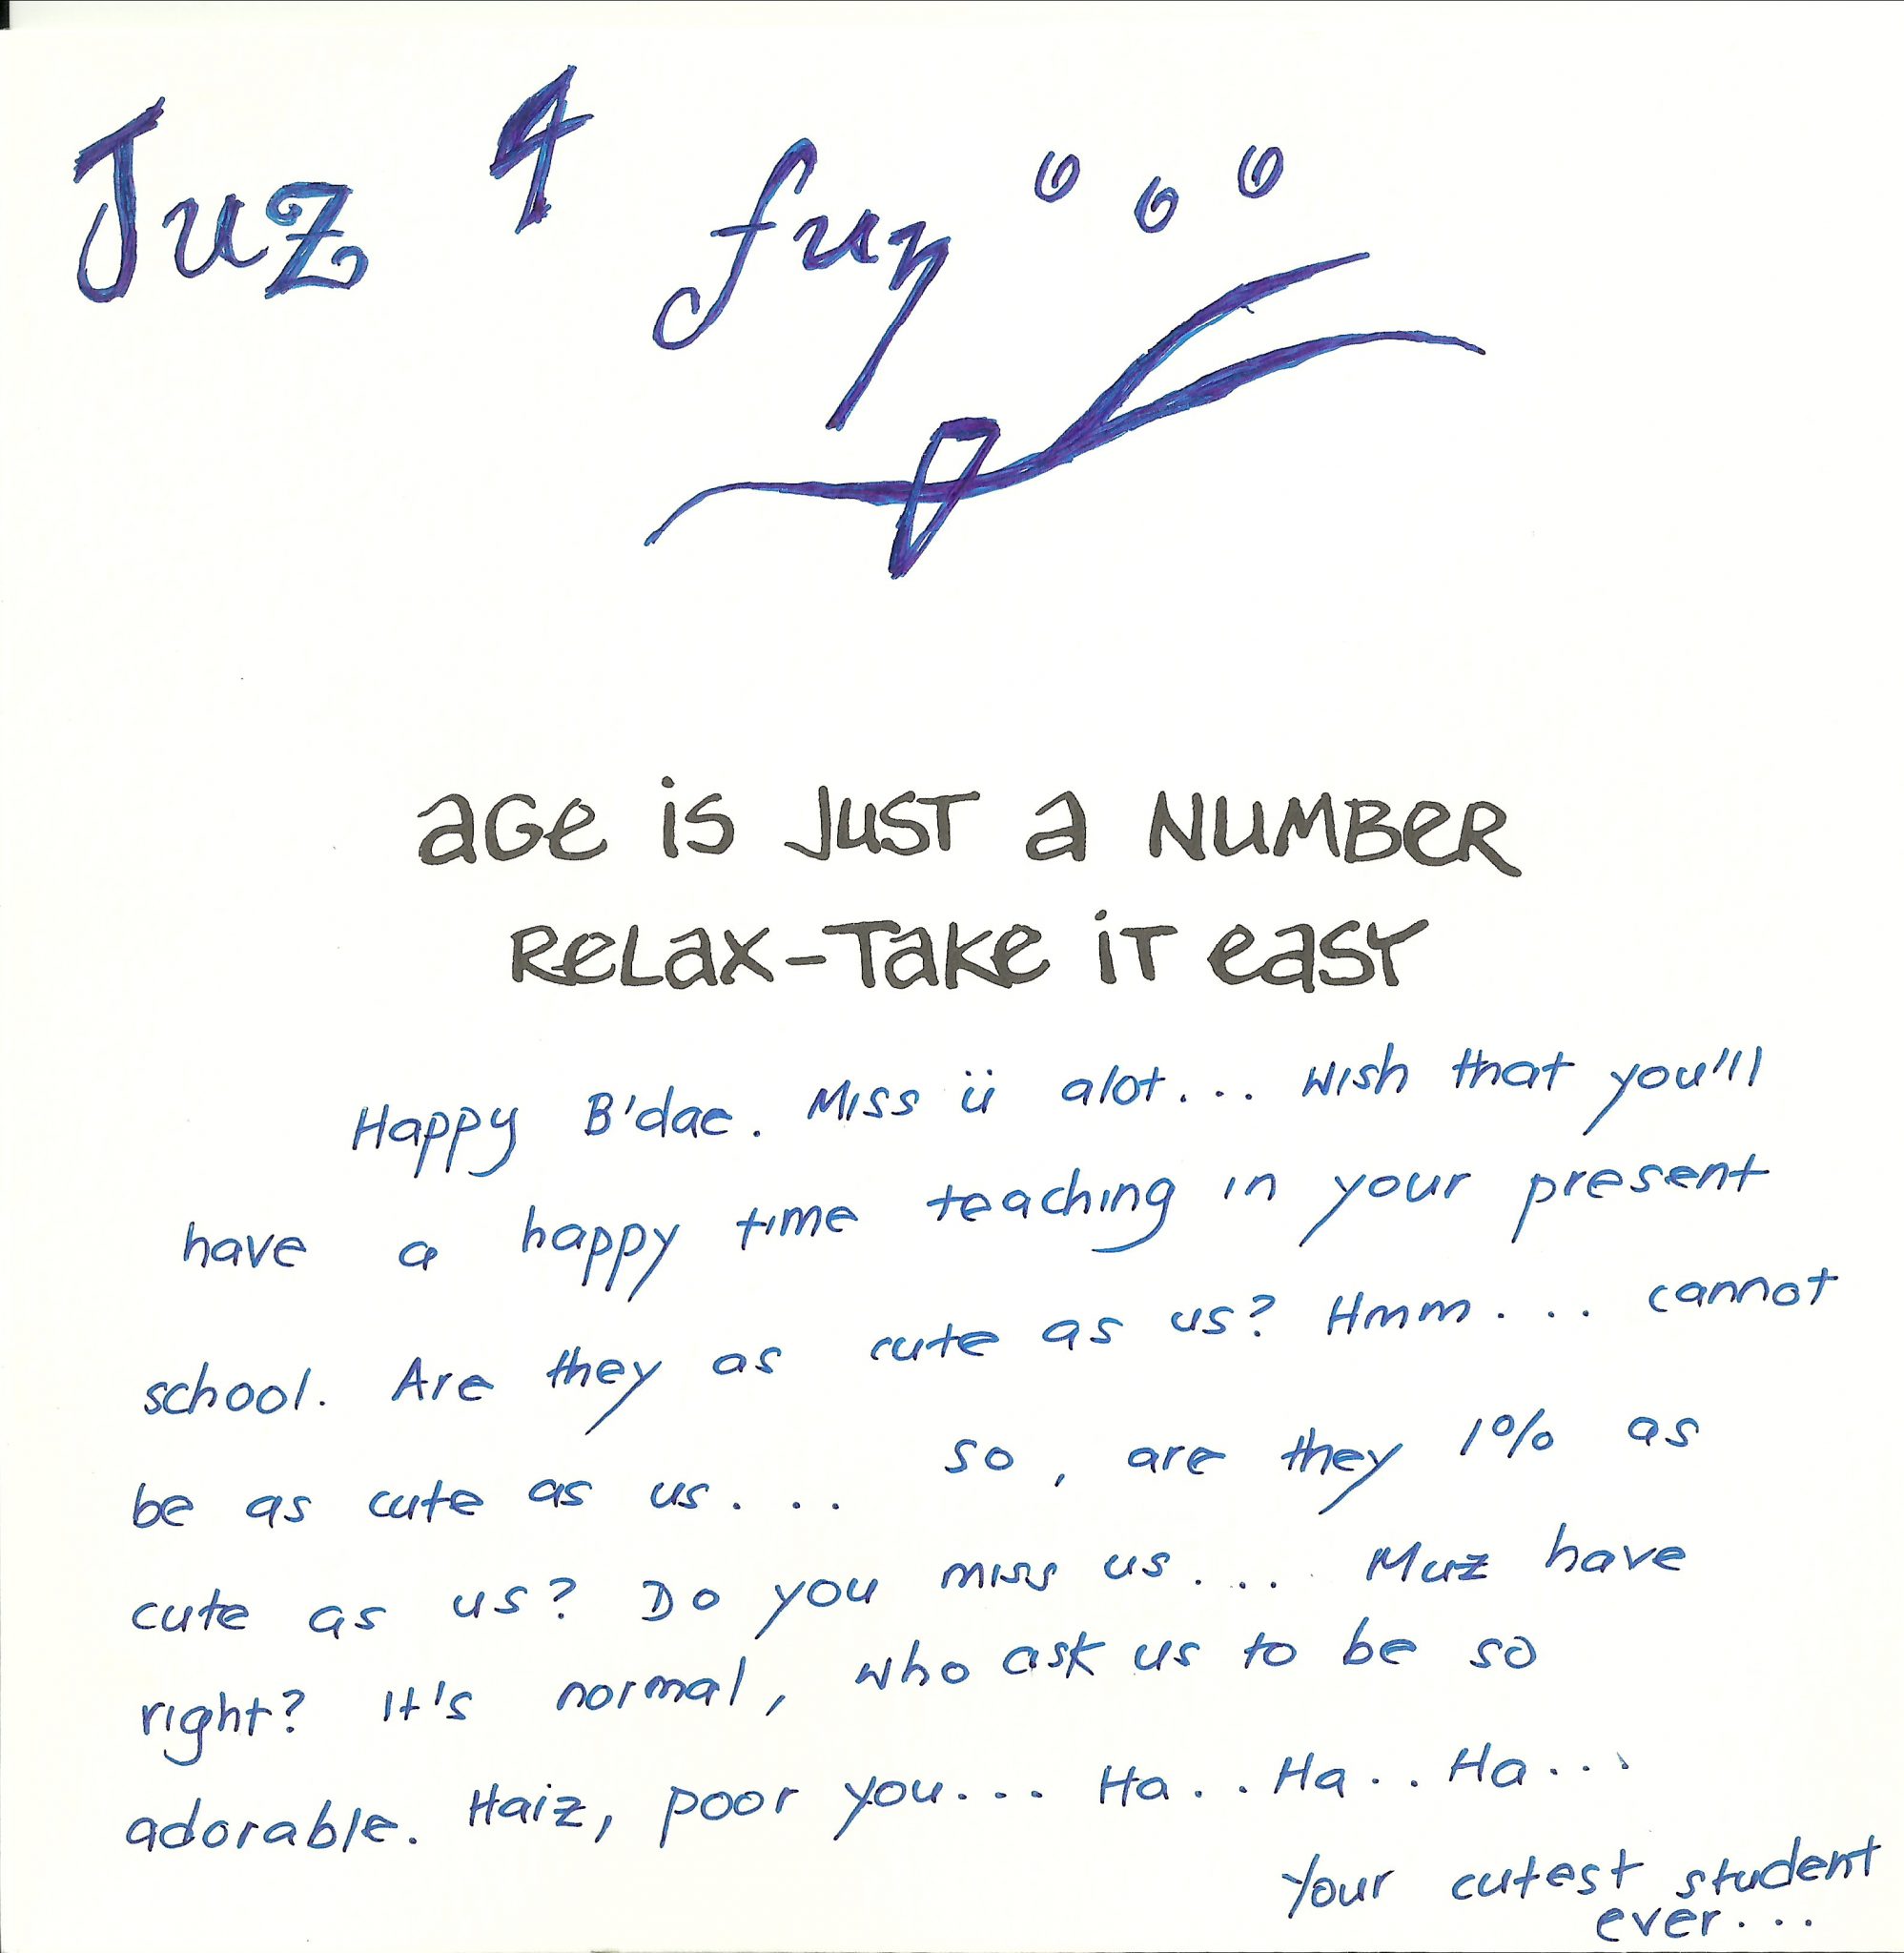 Juz 4 fun...
age is JUST a NUMBER
RELAX-Take iT easy
Happy B'dae. Miss ü alot... Wish that you'll
have a happy time teaching in your present
school. Are they as cute as us? Hmm... cannot
be as cute as us... so, are they 1% as
cute as us? Do you miss us... Muz have
right? It's normal, who ask us to be so
adorable. Haiz, poor you... Ha.. Ha.. Ha...
Your cutest student
ever...